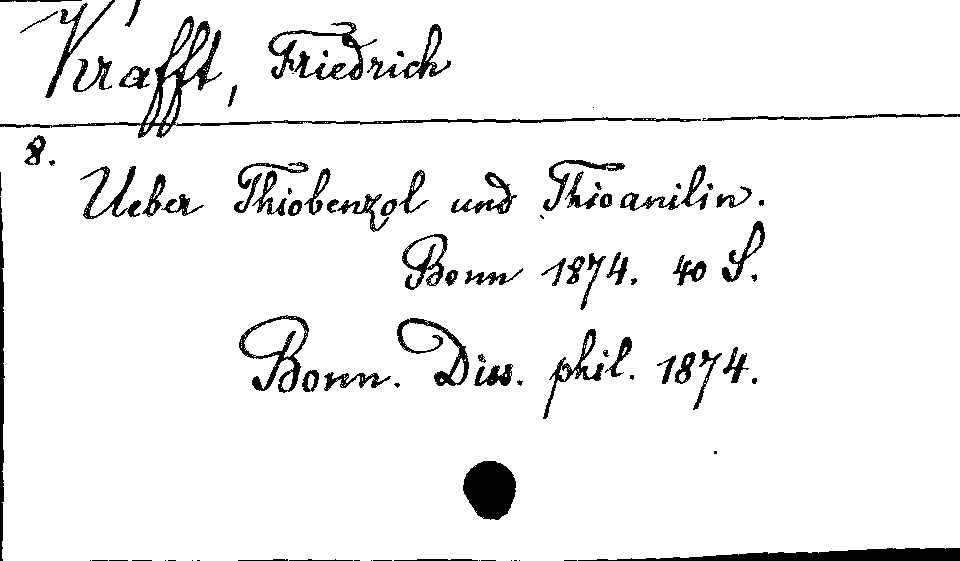 Krafft, Friedrich
8.
Ueber Thiobenzol und Thioanilin.
Bonn 1874. 40 S.
Bonn. Diss. phil. 1874.